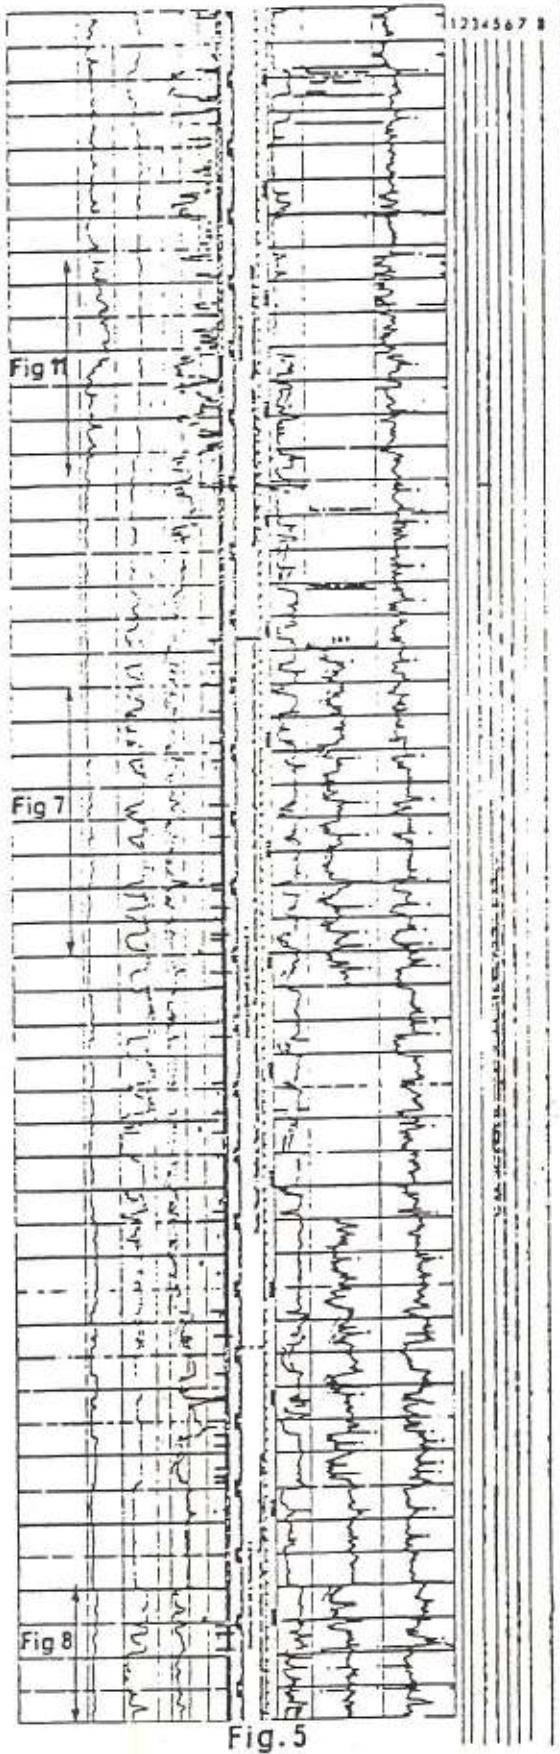 1 2 3 4 5 6 7 8
Fig 11
Fig 7
Fig 8
Fig. 5